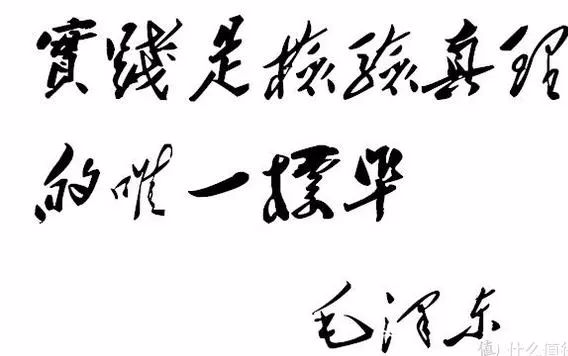 實踐是檢驗真理
的唯一標準
毛泽东
值 什么值得